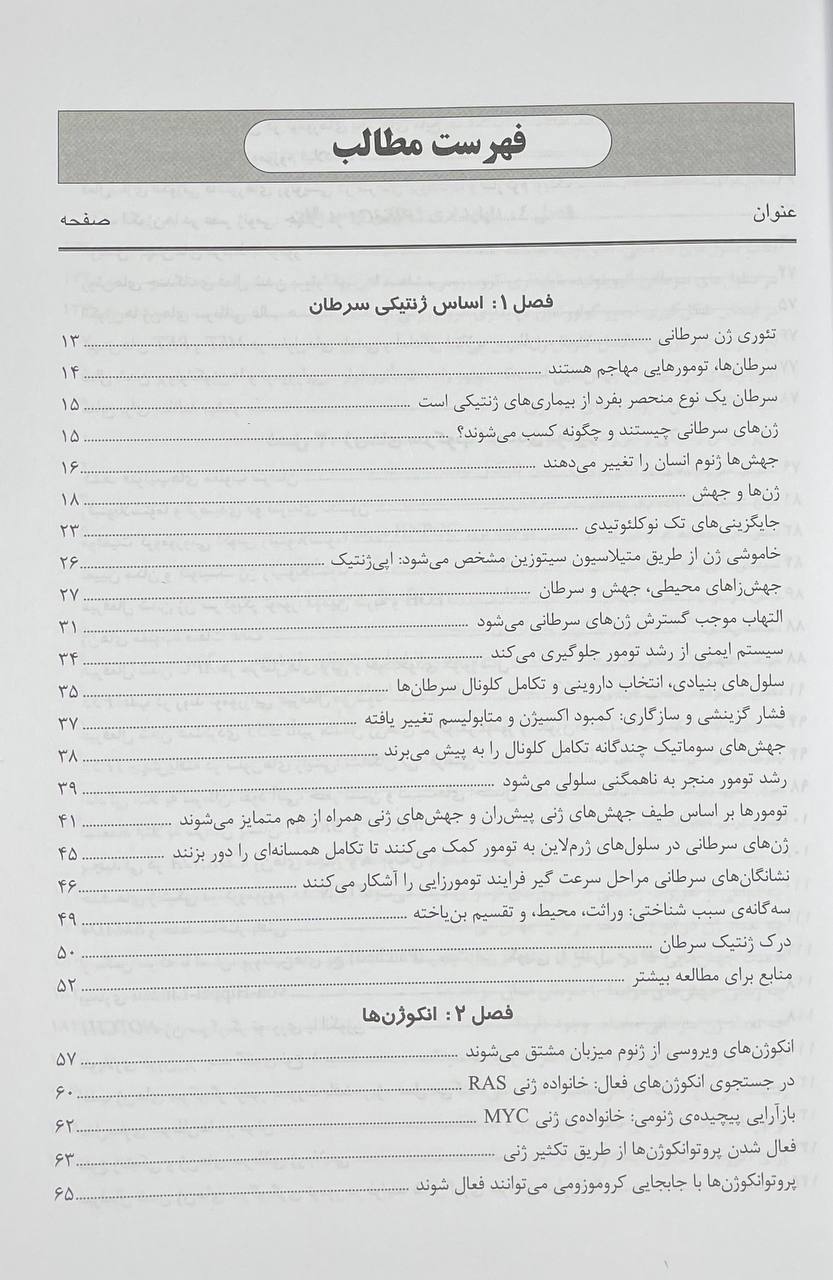 فهرست مطالب
عنوان صفحه
فصل ۱: اساس ژنتیکی سرطان
تئوری ژن سرطانی ۱۳
سرطان‌ها، تومورهایی مهاجم هستند ۱۴
سرطان یک نوع منحصر بفرد از بیماری‌های ژنتیکی است ۱۵
ژن‌های سرطانی چیستند و چگونه کسب می‌شوند؟ ۱۵
جهش‌ها ژنوم انسان را تغییر می‌دهند ۱۶
ژن‌ها و جهش ۱۸
جایگزینی‌های تک نوکلئوتیدی ۲۳
خاموشی ژن از طریق متیلاسیون سیتوزین مشخص می‌شود: اپی‌ژنتیک ۲۶
جهش‌زاهای محیطی، جهش و سرطان ۲۷
التهاب موجب گسترش ژن‌های سرطانی می‌شود ۳۱
سیستم ایمنی از رشد تومور جلوگیری می‌کند ۳۴
سلول‌های بنیادی، انتخاب داروینی و تکامل کلونال سرطان‌ها ۳۵
فشار گزینشی و سازگاری: کمبود اکسیژن و متابولیسم تغییر یافته ۳۷
جهش‌های سوماتیک چندگانه تکامل کلونال را به پیش می‌برند ۳۸
رشد تومور منجر به ناهمگنی سلولی می‌شود ۳۹
تومورها بر اساس طیف جهش‌های ژنی پیش‌ران و جهش‌های ژنی همراه از هم متمایز می‌شوند ۴۱
ژن‌های سرطانی در سلول‌های ژرم‌لاین به تومور کمک می‌کنند تا تکامل همسانه‌ای را دور بزنند ۴۵
نشانگان‌های سرطانی مراحل سرعت گیر فرایند تومورزایی را آشکار می‌کنند ۴۶
سه‌گانه‌ی سبب شناختی: وراثت، محیط، و تقسیم بن‌یاخته ۴۹
درک ژنتیک سرطان ۵۰
منابع برای مطالعه بیشتر ۵۲
فصل ۲: انکوژن‌ها
انکوژن‌های ویروسی از ژنوم میزبان مشتق می‌شوند ۵۷
در جستجوی انکوژن‌های فعال: خانواده ژنی RAS ۶۰
بازآرایی پیچیده‌ی ژنومی: خانواده‌ی ژنی MYC ۶۲
فعال شدن پروتوانکوژن‌ها از طریق تکثیر ژنی ۶۳
پروتوانکوژن‌ها با جابجایی کروموزومی می‌توانند فعال شوند ۶۵